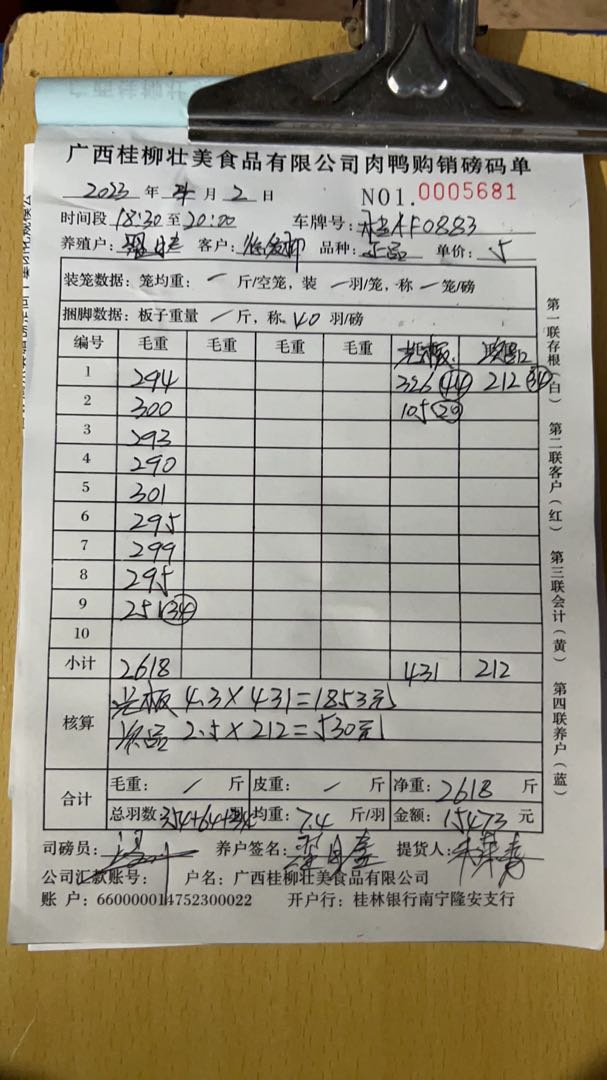 广西桂柳壮美食品有限公司肉鸭购销磅码单
2023 年 月 2 日 NO1.0005681
时间段 18:30 至 20:00 车牌号: AF0883
养殖户: 客户: 品种: 正品 单价: 5
装笼数据: 笼均重: / 斤/空笼, 装 / 羽/笼, 称 / 笼/磅
捆脚数据: 板子重量 / 斤, 称 40 羽/磅
编号 毛重 毛重 毛重 毛重 光板
1 294 326 44 212 34
2 300 105 20
3 293
4 290
5 301
6 295
7 299
8 295
9 251 34
10
小计 2618 431 212
核算 光板 4.3×431=1853元
次品 2.5×212=530元
合计 毛重: / 斤 皮重: / 斤 净重: 2618 斤
总羽数 354+64+34 均重: 7.4 斤/羽 金额: 15473 元
司磅员: 养户签名: 提货人:
公司汇款账号: 户名: 广西桂柳壮美食品有限公司
账 户: 660000014752300022 开户行: 桂林银行南宁隆安支行
第一联存根(白) 第二联客户(红) 第三联会计(黄) 第四联养户(蓝)